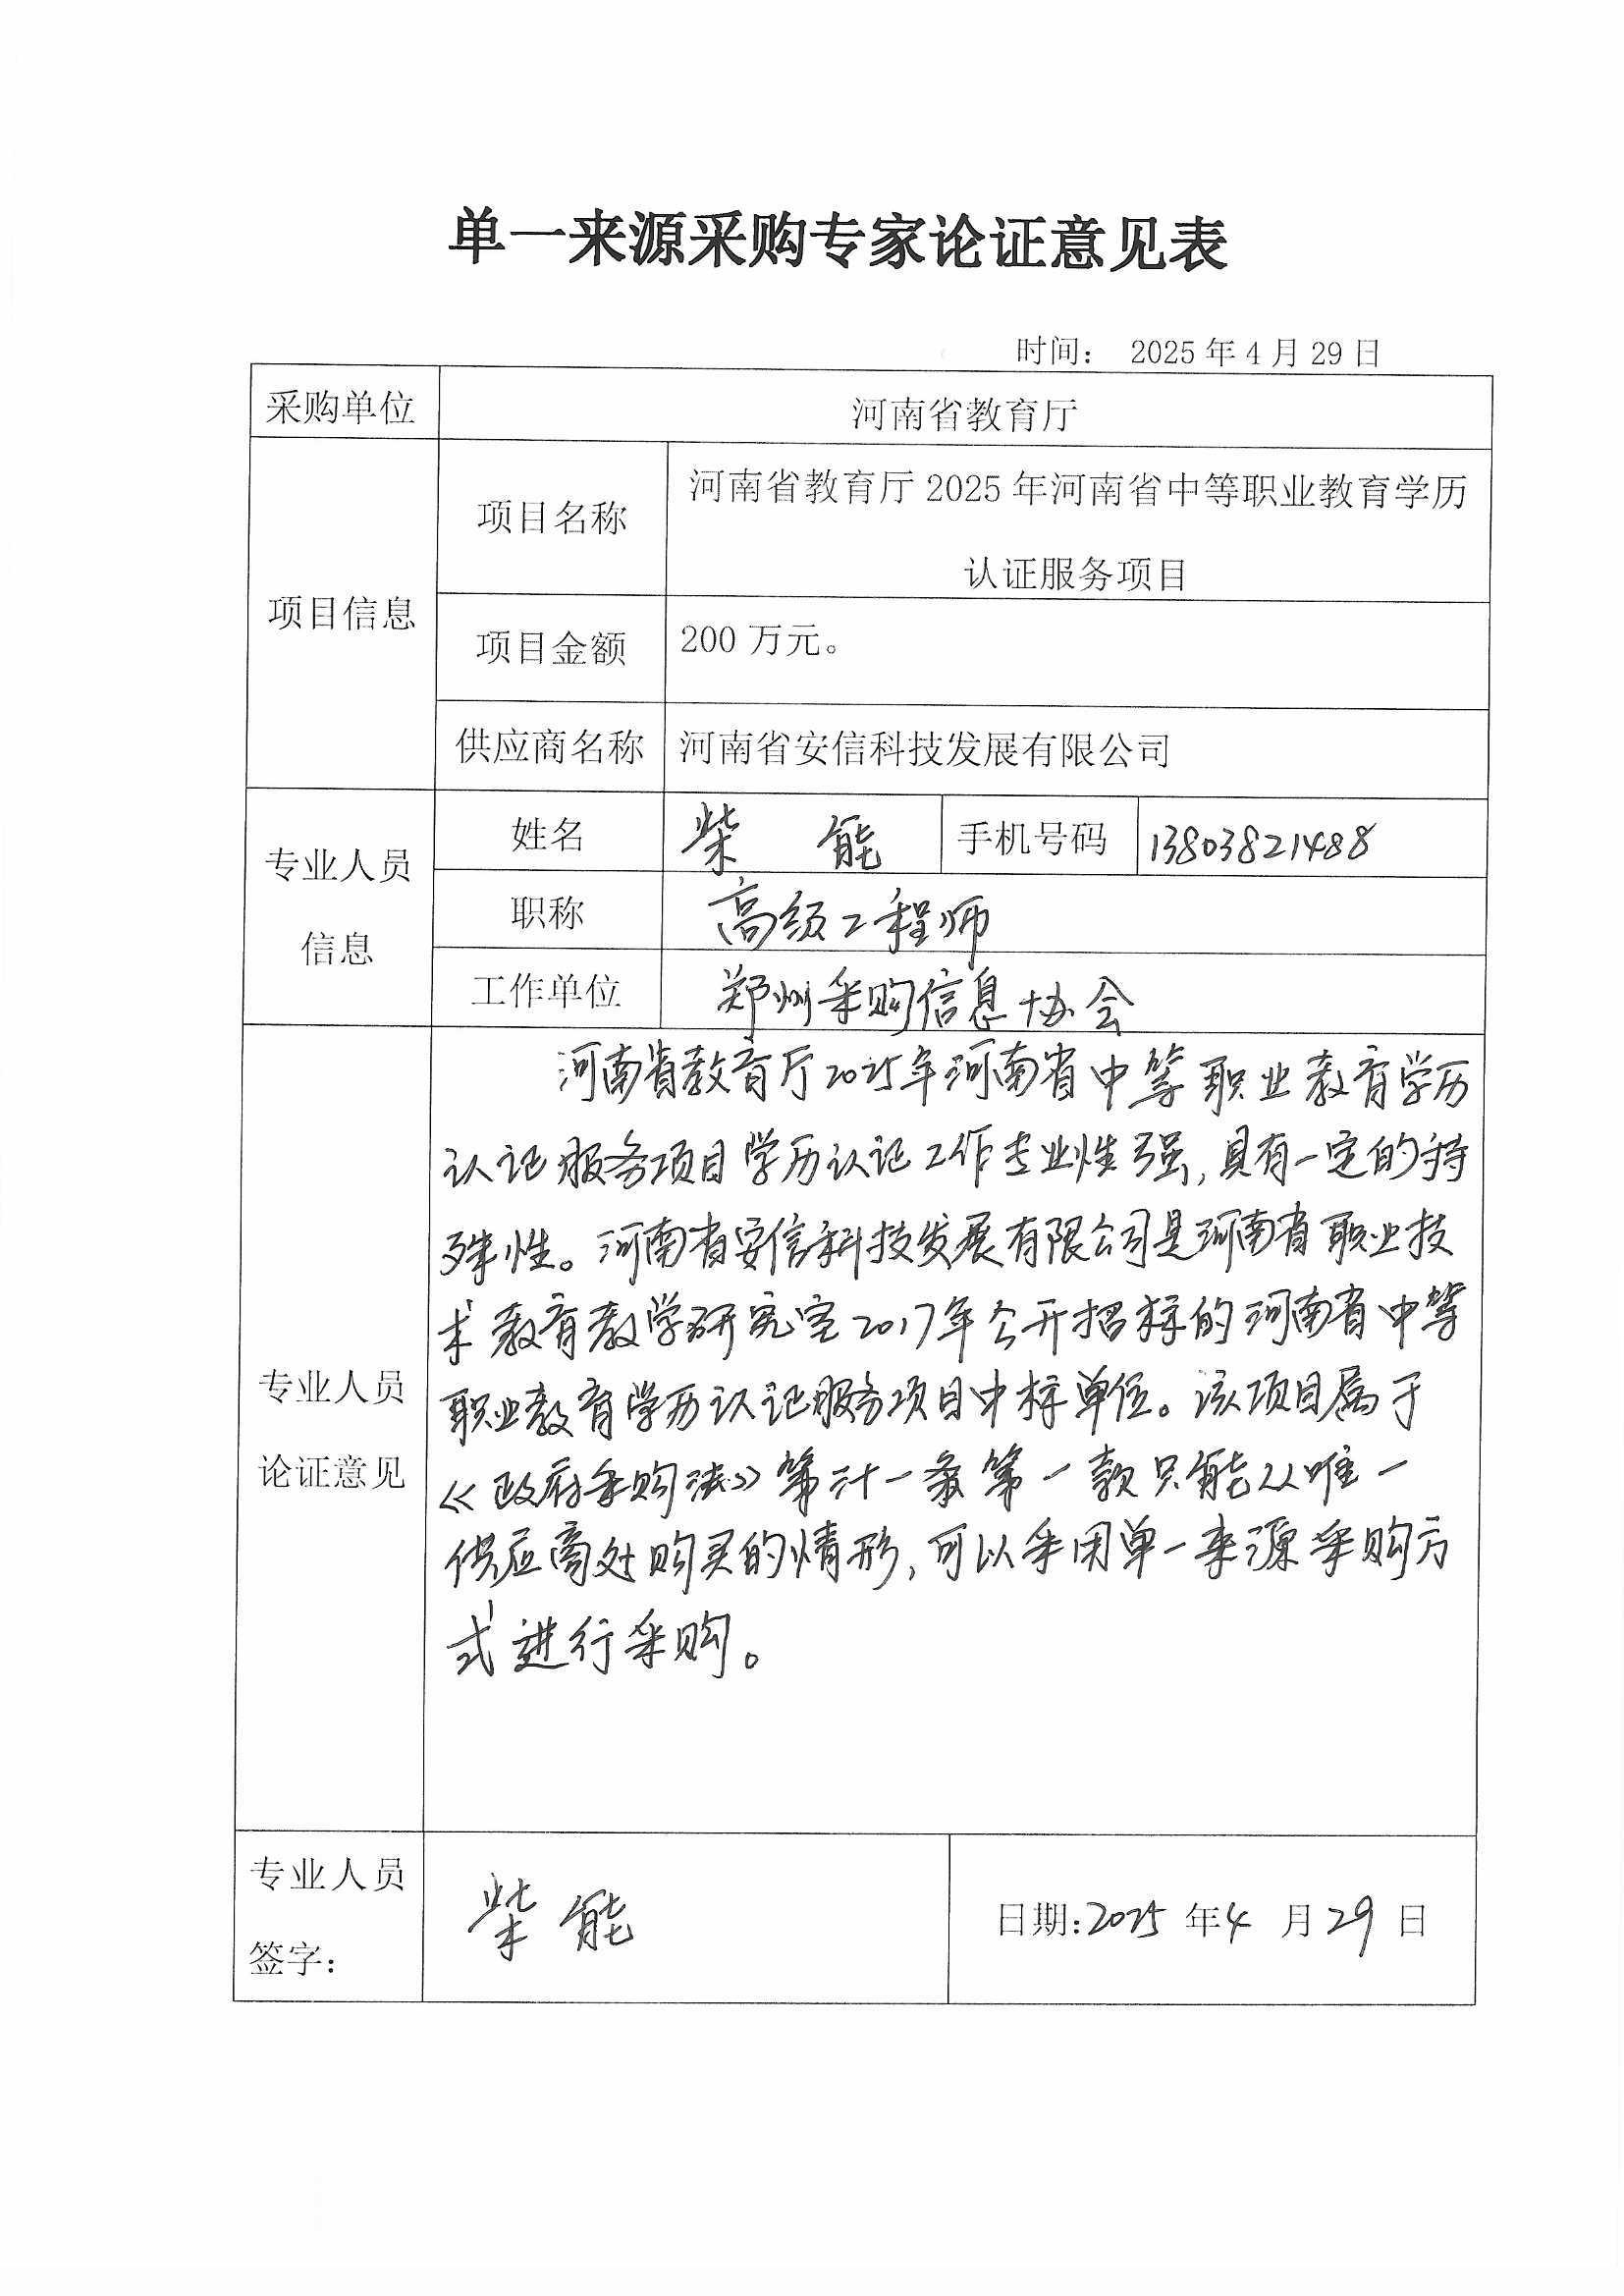 单一来源采购专家论证意见表
时间： 2025年4月29日
采购单位 河南省教育厅
项目信息
项目名称 河南省教育厅2025年河南省中等职业教育学历
认证服务项目
项目金额 200万元。
供应商名称 河南省安信科技发展有限公司
专业人员
信息
姓名 柴能 手机号码 13803821488
职称 高级工程师
工作单位 郑州采购信息协会
专业人员
论证意见
河南省教育厅2025年河南省中等职业教育学历
认证服务项目学历认证工作专业性强,具有一定的特
殊性。河南省安信科技发展有限公司是河南省职业技
术教育教学研究室2017年公开招标的河南省中等
职业教育学历认证服务项目中标单位。该项目属于
《政府采购法》第卅一条第一款只能从唯一
供应商处购买的情形,可以采用单一来源采购方
式进行采购。
专业人员
签字：
柴能
日期:2025年4月29日